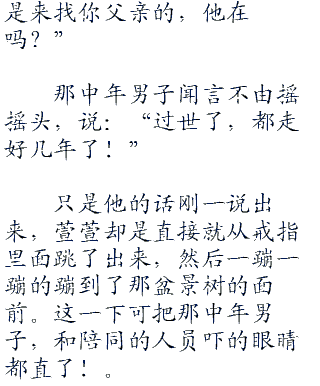 是来找你父亲的，他在
吗？”
那中年男子闻言不由摇
摇头，说：“过世了，都走
好几年了！”
只是他的话刚一说出
来，萱萱却是直接就从戒指
里面跳了出来，然后一蹦一
蹦的蹦到了那盆景树的面
前。这一下可把那中年男
子，和陪同的人员吓的眼睛
都直了！。